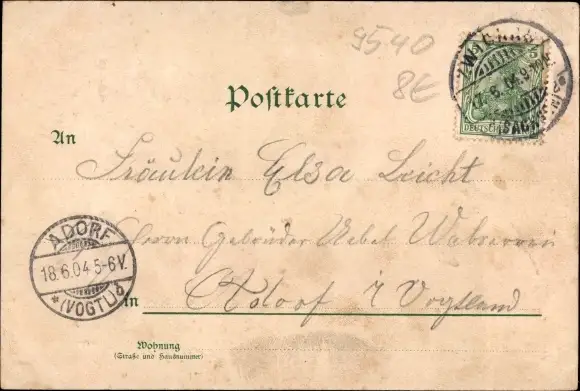 9540
8€
Postkarte
5
DEUTSCHES
17.6.04.9
(SACHSEN)
An
Fräulein Elsa Leicht
Herrn Gebrüder Uebel
ADORF
18.6.04.5-6V.
*(VOGTL.)b
in Adorf i. Vogtland
Wohnung
(Straße und Hausnummer)